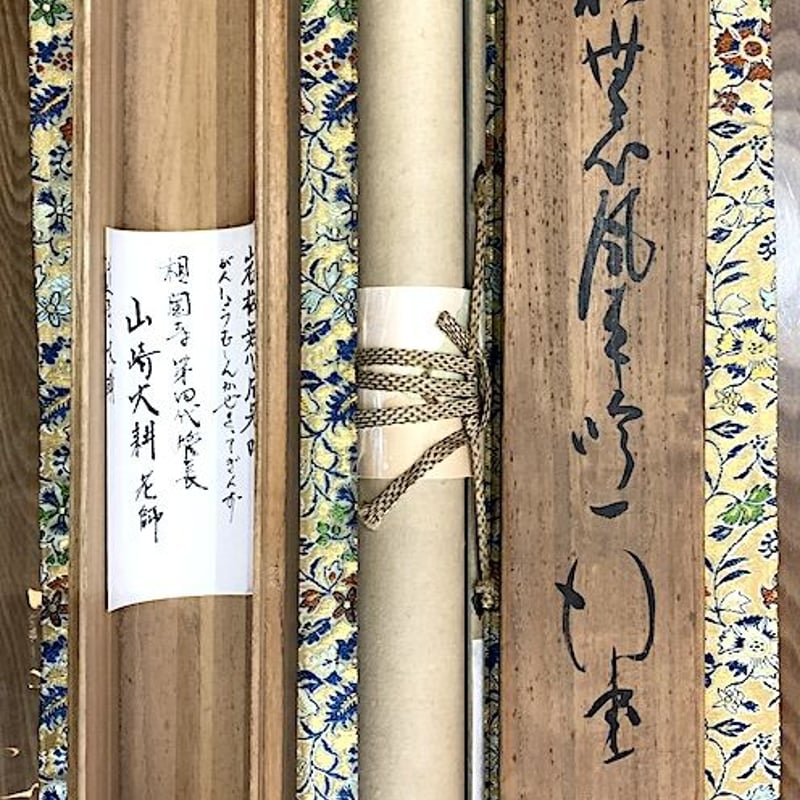 松無心風来吟一
行書
岩松無心風来吟
がんしょうむしんかぜきってぎんず
相国寺 第四代管長
山崎大耕 老師